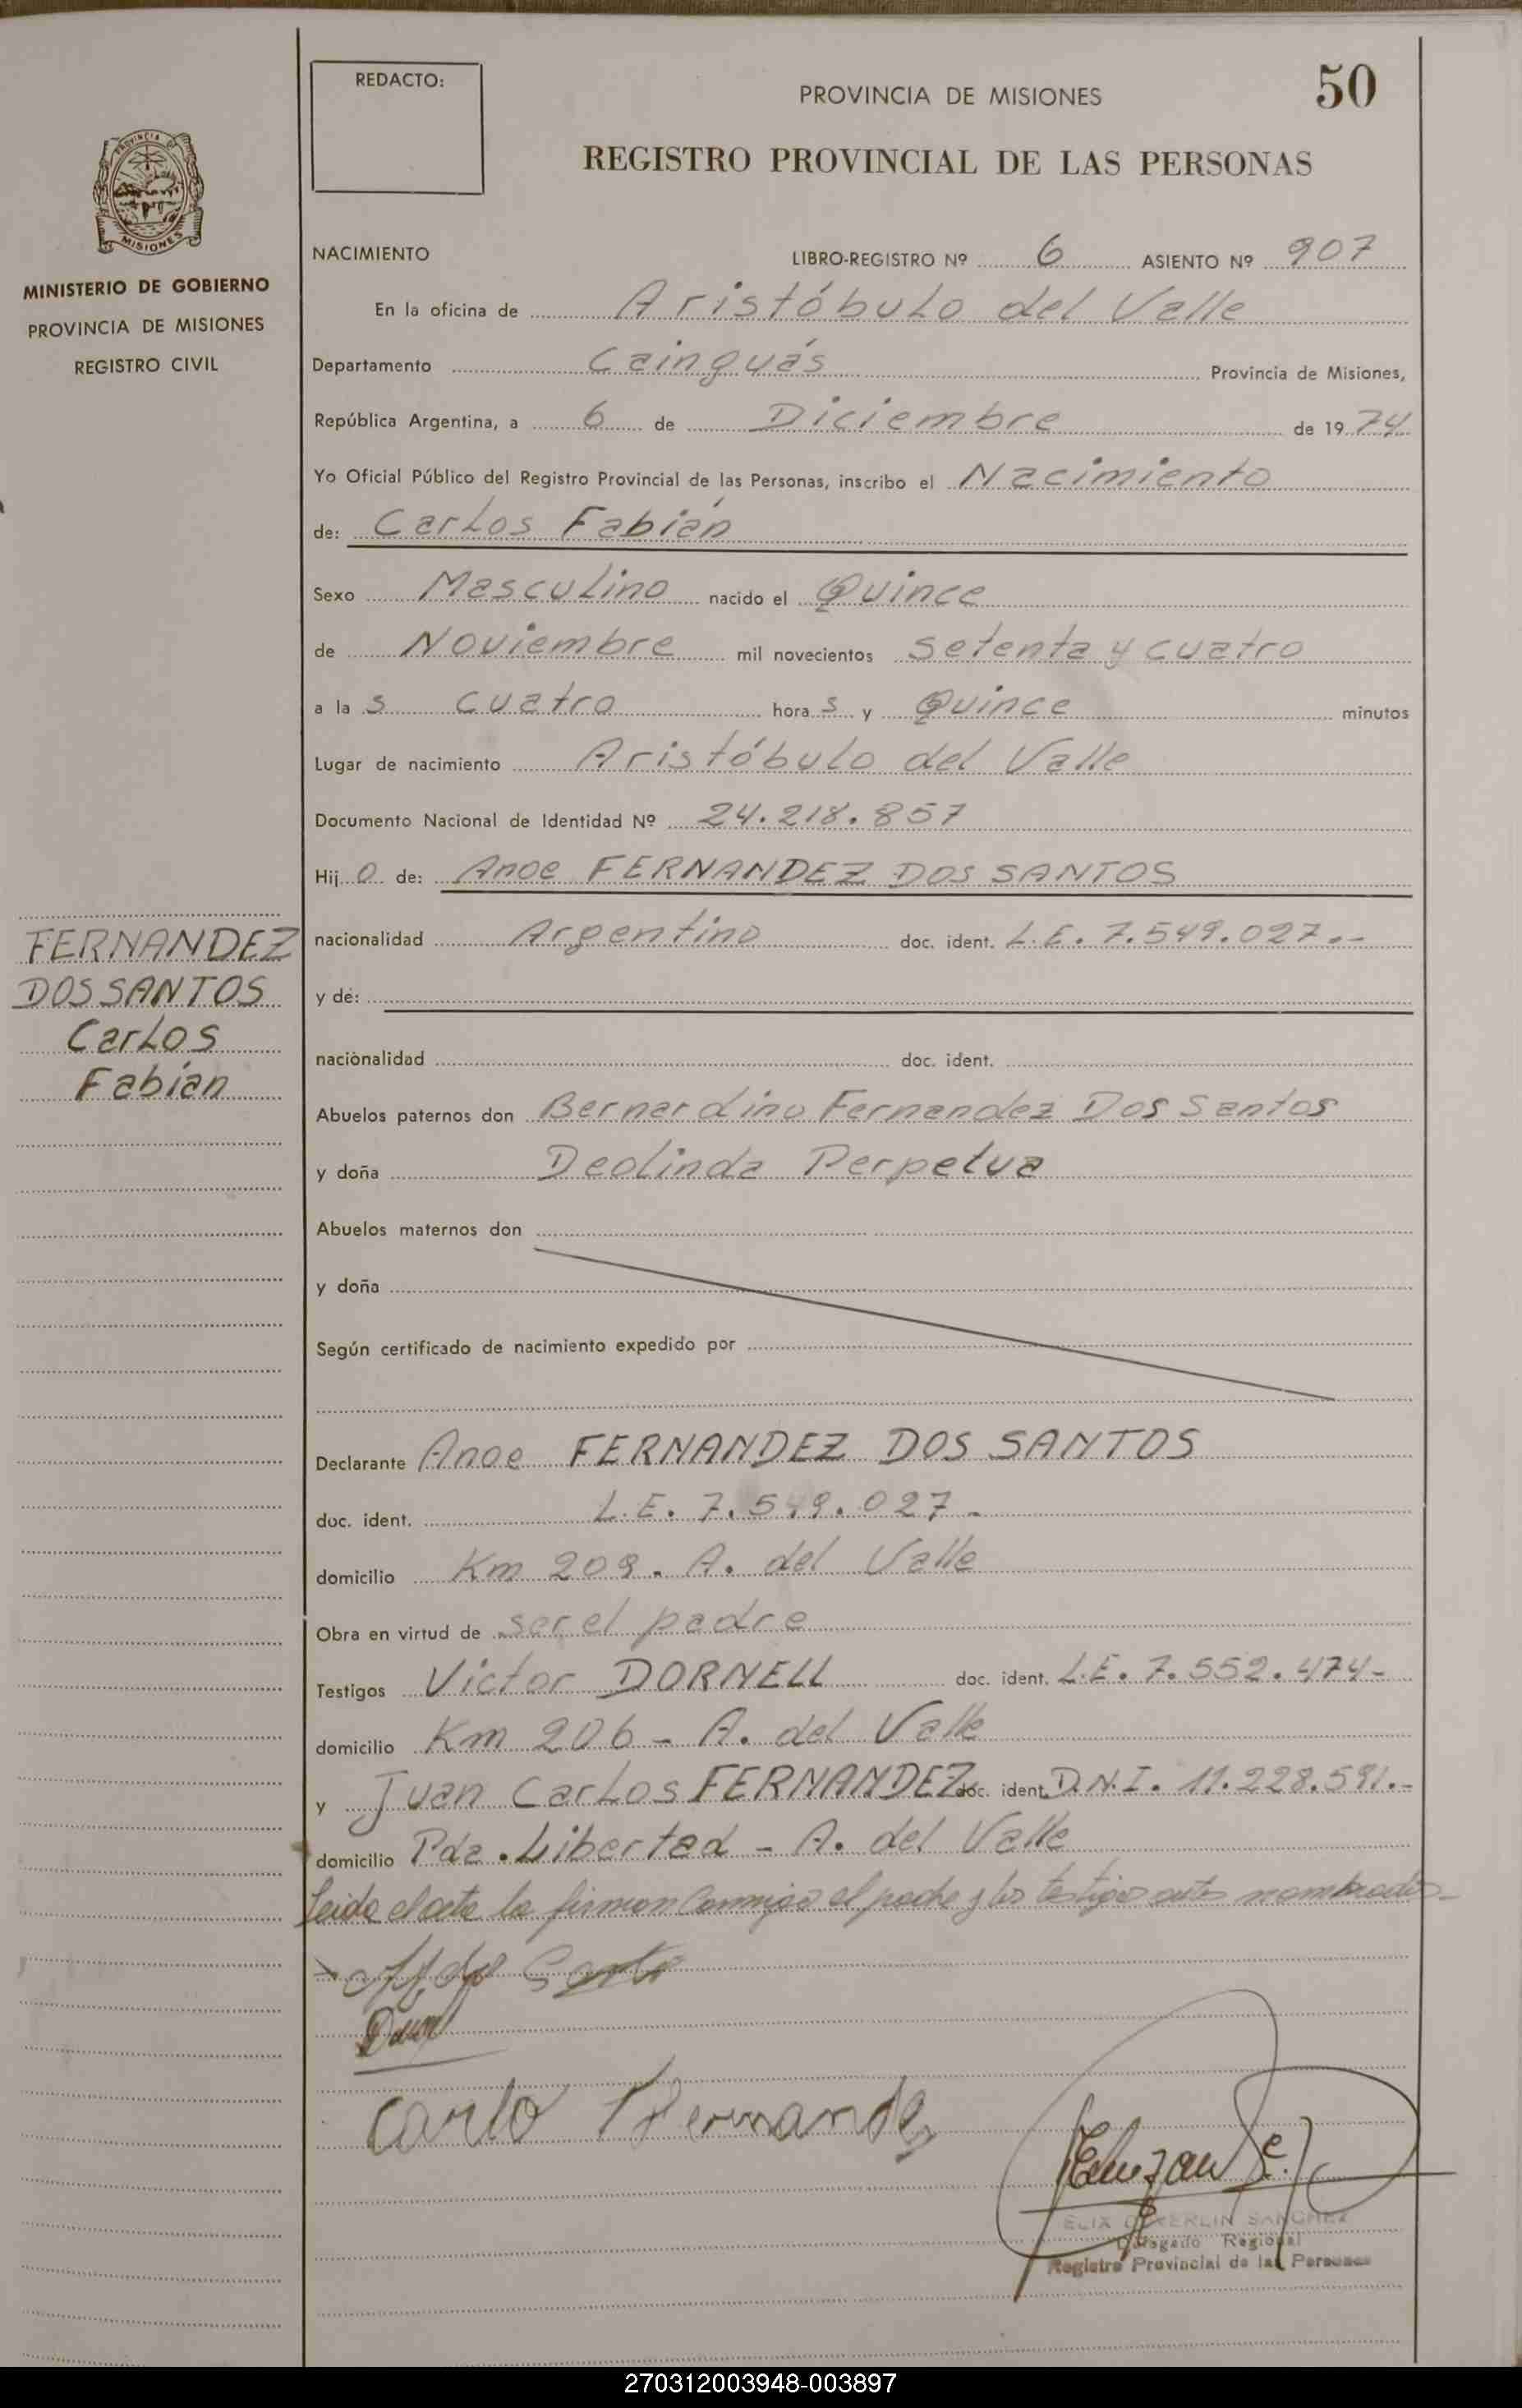 REDACTO:
PROVINCIA DE MISIONES
50
REGISTRO PROVINCIAL DE LAS PERSONAS
PROVINCIA DE
MISIONES
MINISTERIO DE GOBIERNO
PROVINCIA DE MISIONES
REGISTRO CIVIL
NACIMIENTO LIBRO-REGISTRO Nº 6 ASIENTO Nº 907
En la oficina de Aristóbulo del Valle
Departamento Cainguás Provincia de Misiones,
República Argentina, a 6 de Diciembre de 1974
Yo Oficial Público del Registro Provincial de las Personas, inscribo el Nacimiento
de: Carlos Fabián
Sexo Masculino nacido el Quince
de Noviembre mil novecientos setenta y cuatro
a la s cuatro hora s y Quince minutos
Lugar de nacimiento Aristóbulo del Valle
Documento Nacional de Identidad Nº 24.218.857
Hij o de: Anoe FERNANDEZ DOS SANTOS
nacionalidad Argentino doc. ident. L.E. 7.549.027.-
y de:
nacionalidad doc. ident.
Abuelos paternos don Bernardino Fernandez Dos Santos
y doña Deolinda Perpetua
Abuelos maternos don
y doña
Según certificado de nacimiento expedido por
Declarante Anoe FERNANDEZ DOS SANTOS
doc. ident. L.E. 7.549.027-
domicilio Km 209. A. del Valle
Obra en virtud de ser el padre
Testigos Victor DORNELL doc. ident. L.E. 7.552.474-
domicilio Km 206 - A. del Valle
y Juan Carlos FERNANDEZ doc. ident. D.N.I. 11.228.591.-
domicilio Pda. Libertad - A. del Valle
Leida el acta la firman conmigo el padre y los testigos antes nombrados-
FERNANDEZ
DOS SANTOS
Carlos
Fabián
Carlo Fernandez
SANCHEZ
Delegado Regional
Registro Provincial de las Personas
270312003948-003897